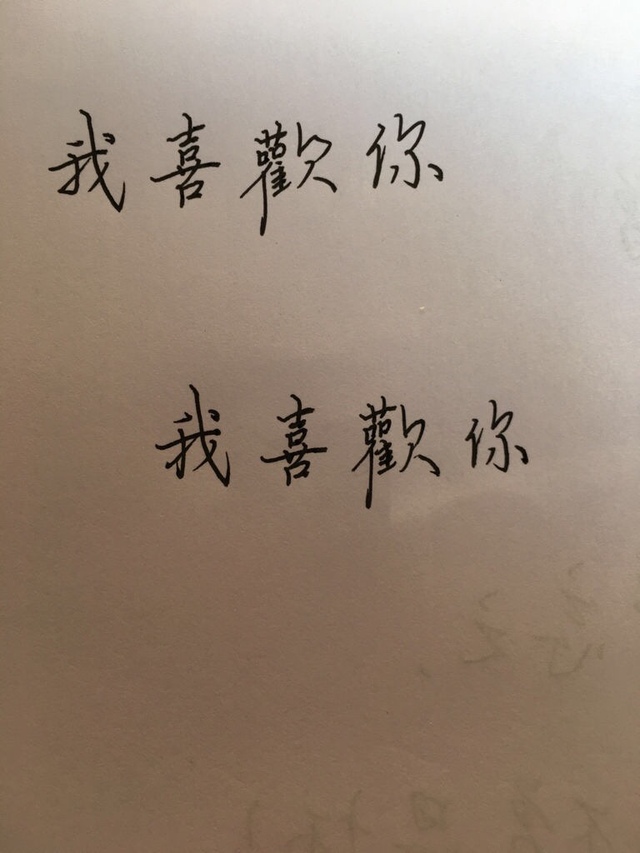 我喜歡你
我喜歡你